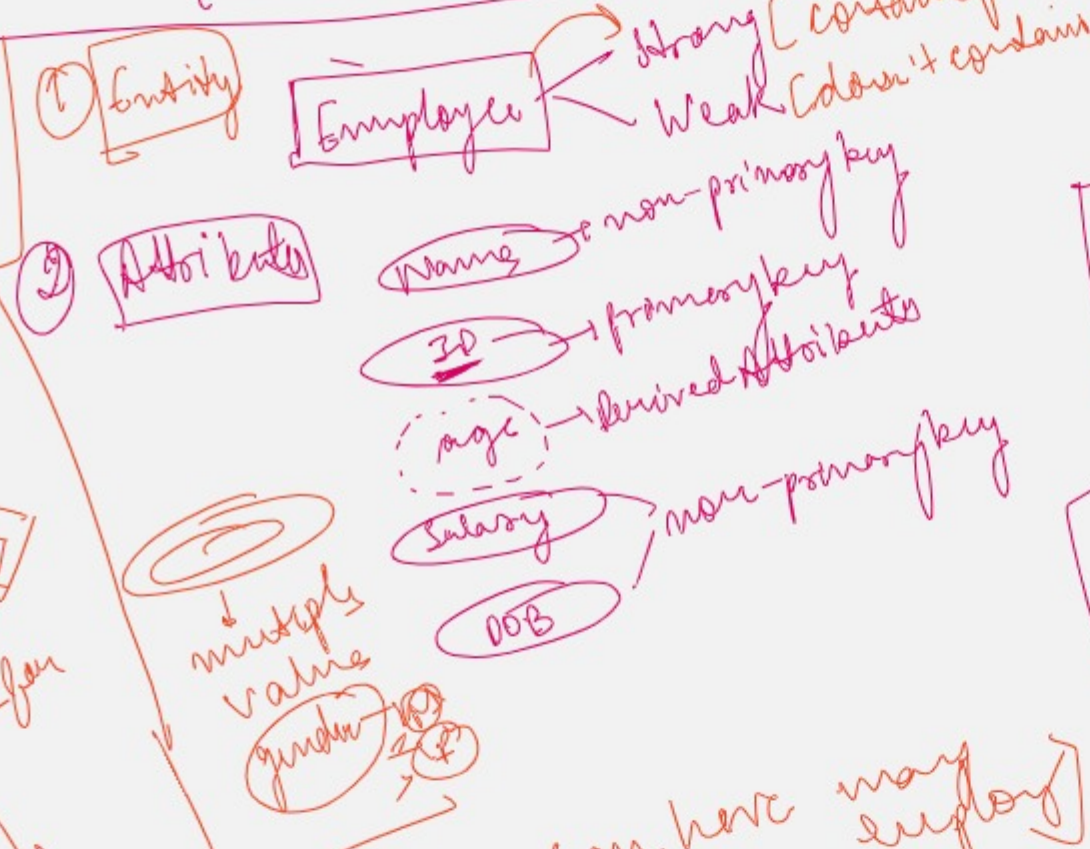 ① Entity
Employee
Strong [
Weak [doesn't contain
② Attributes
Name → non-primary key
ID → primary key
age → Derived Attributes
Salary
DOB
non-primary key
multiple
value
gender
M
F
for
have many
employ]